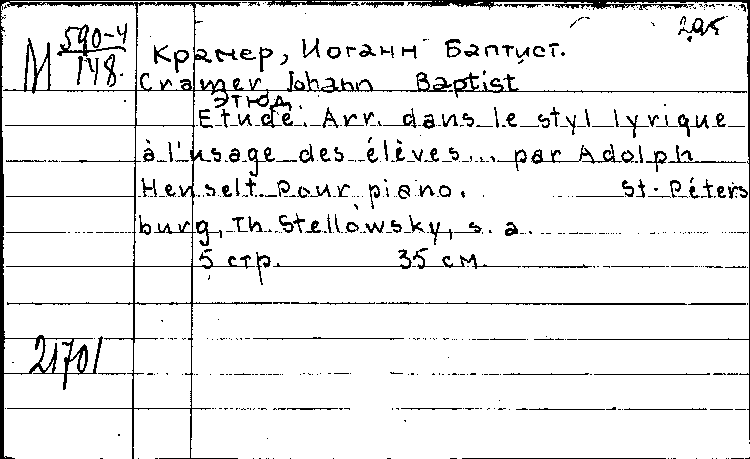 295
M 590-4
148.
Крамер, Иоганн Баптист.
Cramer, Johann Baptist
Этюд.
Etude. Arr. dans le styl lyrique
à l'usage des élèves... par Adolph
Henselt. Pour piano. St-Péters
burg, Th. Stellowsky, s. a.
5 стр. 35 см.
21701